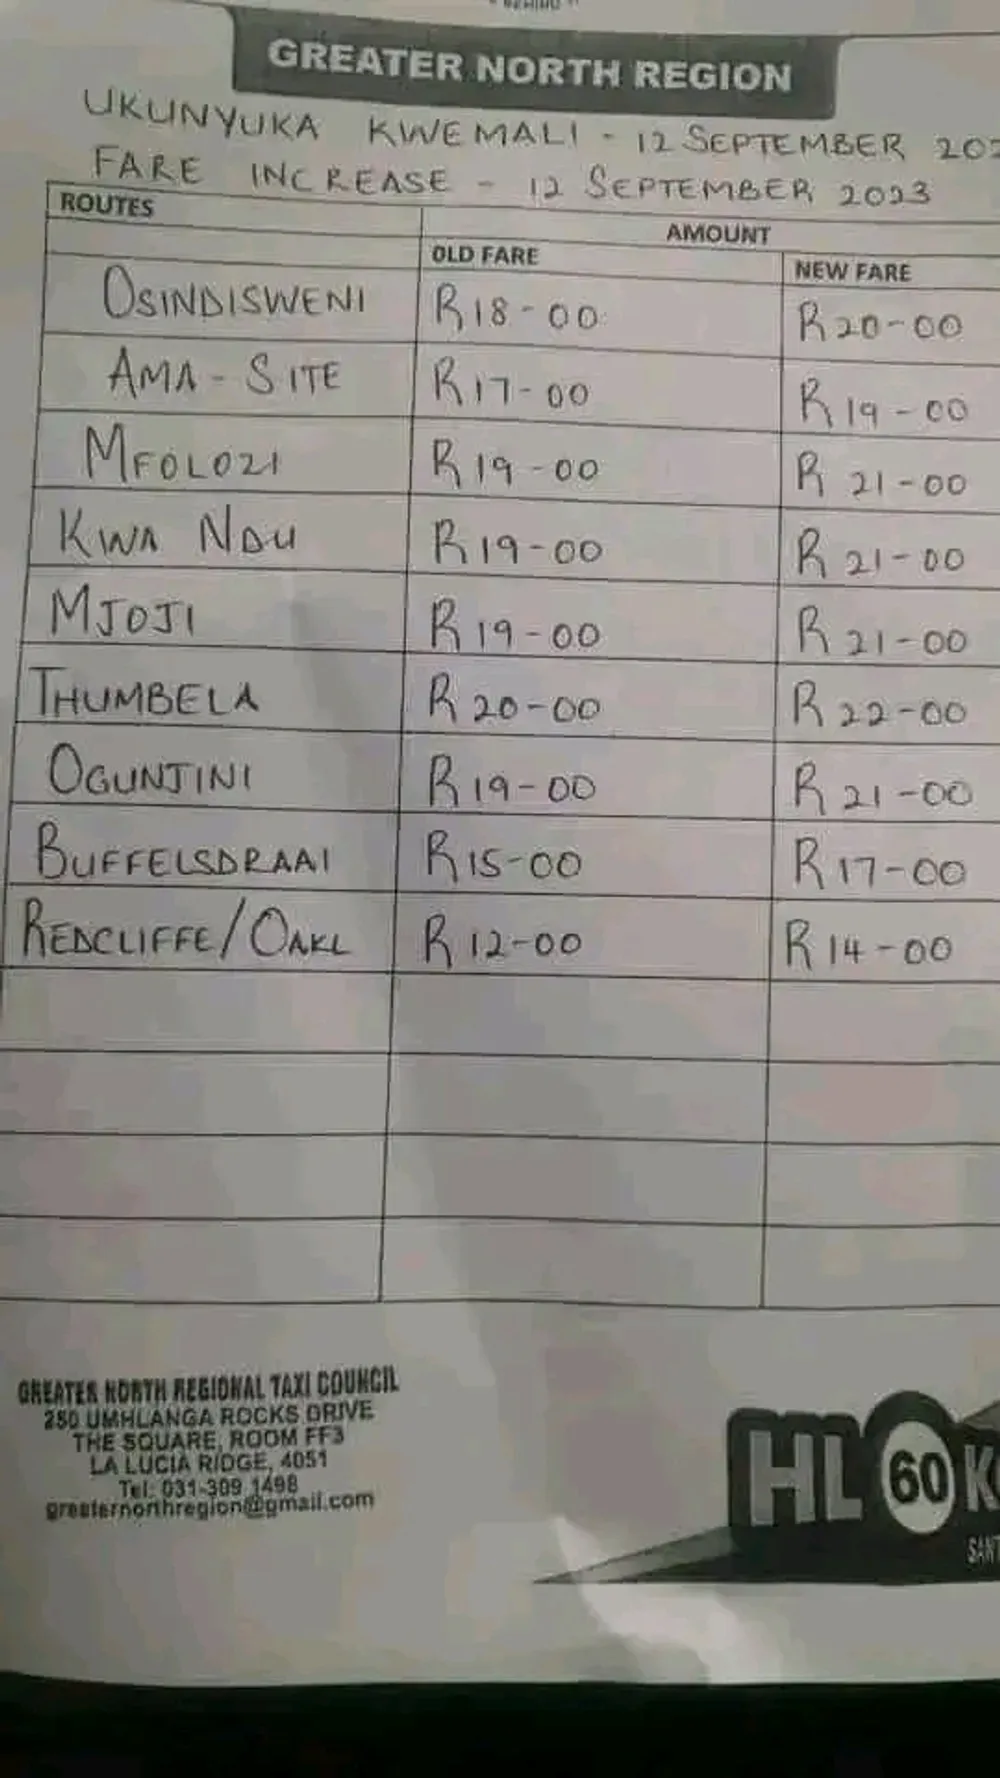 GREATER NORTH REGION
UKUNYUKA KWEMALI - 12 SEPTEMBER 202
FARE INCREASE - 12 SEPTEMBER 2023
ROUTES
AMOUNT
OLD FARE NEW FARE
OSINDISWENI R18-00 R20-00
AMA-SITE R17-00 R19-00
MFOLOZI R19-00 R21-00
KWA NDU R19-00 R21-00
MJOJI R19-00 R21-00
THUMBELA R20-00 R22-00
OGUNJINI R19-00 R21-00
BUFFELSDRAAI R15-00 R17-00
REDCLIFFE/OAKL R12-00 R14-00
GREATER NORTH REGIONAL TAXI COUNCIL
250 UMHLANGA ROCKS DRIVE
THE SQUARE, ROOM FF3
LA LUCIA RIDGE, 4051
Tel: 031-309 1498
greaternorthregion@gmail.com
HL 60 K
SANT